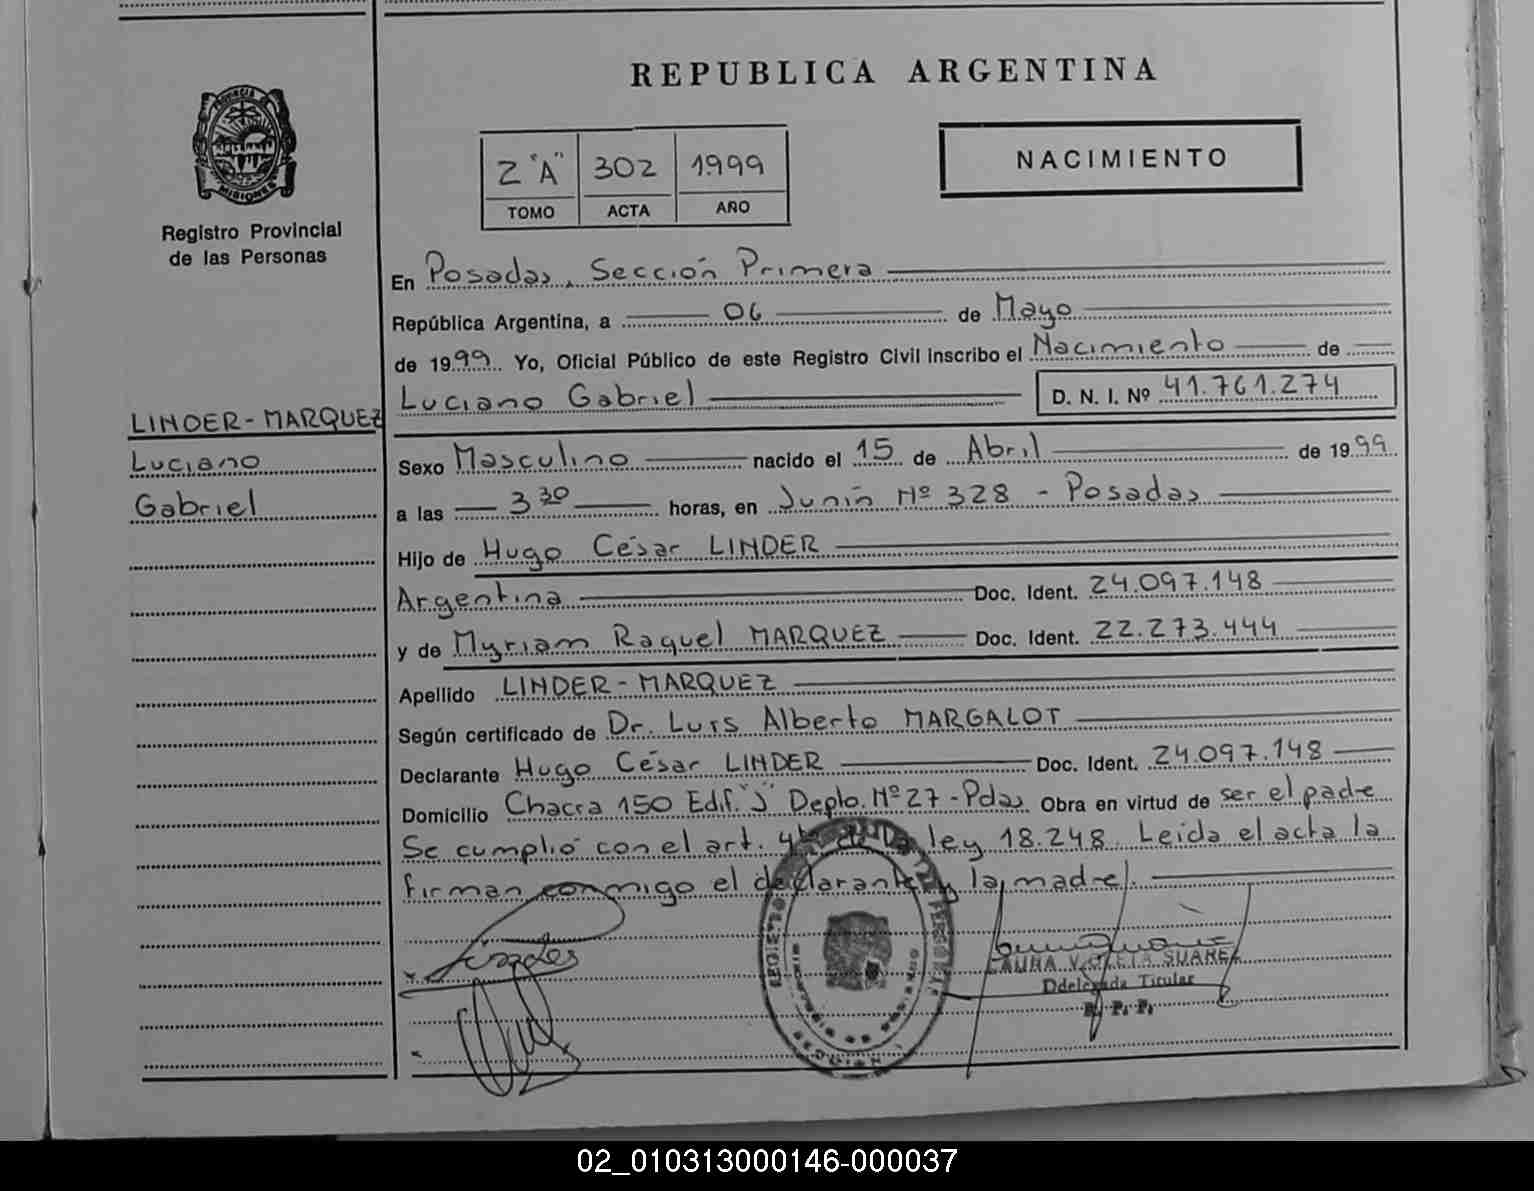 REPUBLICA ARGENTINA
PROVINCIA DE
MISIONES
Registro Provincial
de las Personas
2 "A" 302 1999
TOMO ACTA AÑO
NACIMIENTO
En Posadas, Sección Primera
República Argentina, a 06 de Mayo
de 1999 Yo, Oficial Público de este Registro Civil inscribo el Nacimiento de
Luciano Gabriel D. N. I. Nº 41.761.274
LINDER-MARQUEZ
Luciano
Gabriel
Sexo Masculino nacido el 15 de Abril de 1999
a las 3 30 horas, en Junín Nº 328 - Posadas
Hijo de Hugo César LINDER
Argentina Doc. Ident. 24.097.148
y de Myriam Raquel MARQUEZ Doc. Ident. 22.273.444
Apellido LINDER-MARQUEZ
Según certificado de Dr. Luis Alberto MARGALOT
Declarante Hugo César LINDER Doc. Ident. 24.097.148
Domicilio Chacra 150 Edif. "J" Depto. Nº 27 - Pdas Obra en virtud de ser el padre
Se cumplió con el art. 4to de la ley 18.248. Leída el acta la
firman conmigo el declarante y la madre.
LAURA VIOLETA SUAREZ
Ddelegada Titular
R. P. P.
02_010313000146-000037